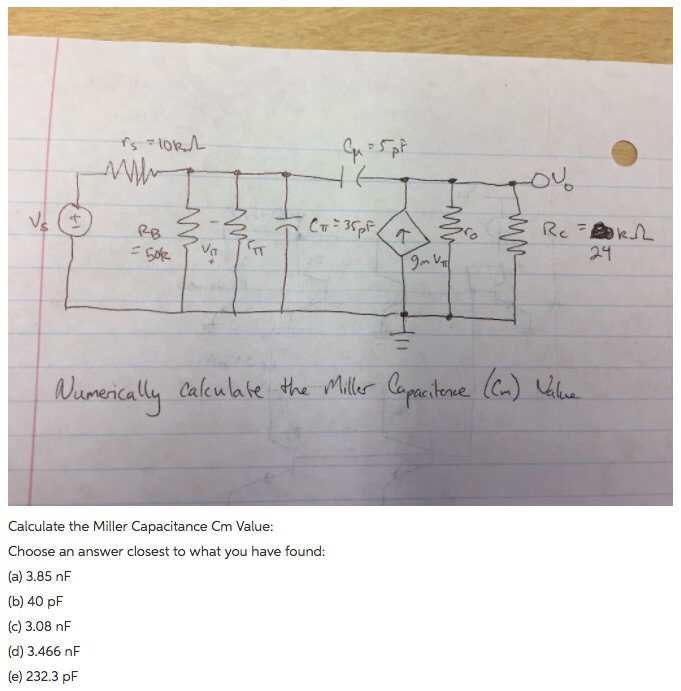 rs = 10kΩ
Cμ = 5pF
Vs
+
-
RB
= 50k
-
Vπ
+
rπ
Cπ = 35pF
gmVπ
ro
OVo
Rc = kΩ
24
Numerically calculate the Miller Capacitence (Cm) Value
Calculate the Miller Capacitance Cm Value:
Choose an answer closest to what you have found:
(a) 3.85 nF
(b) 40 pF
(c) 3.08 nF
(d) 3.466 nF
(e) 232.3 pF